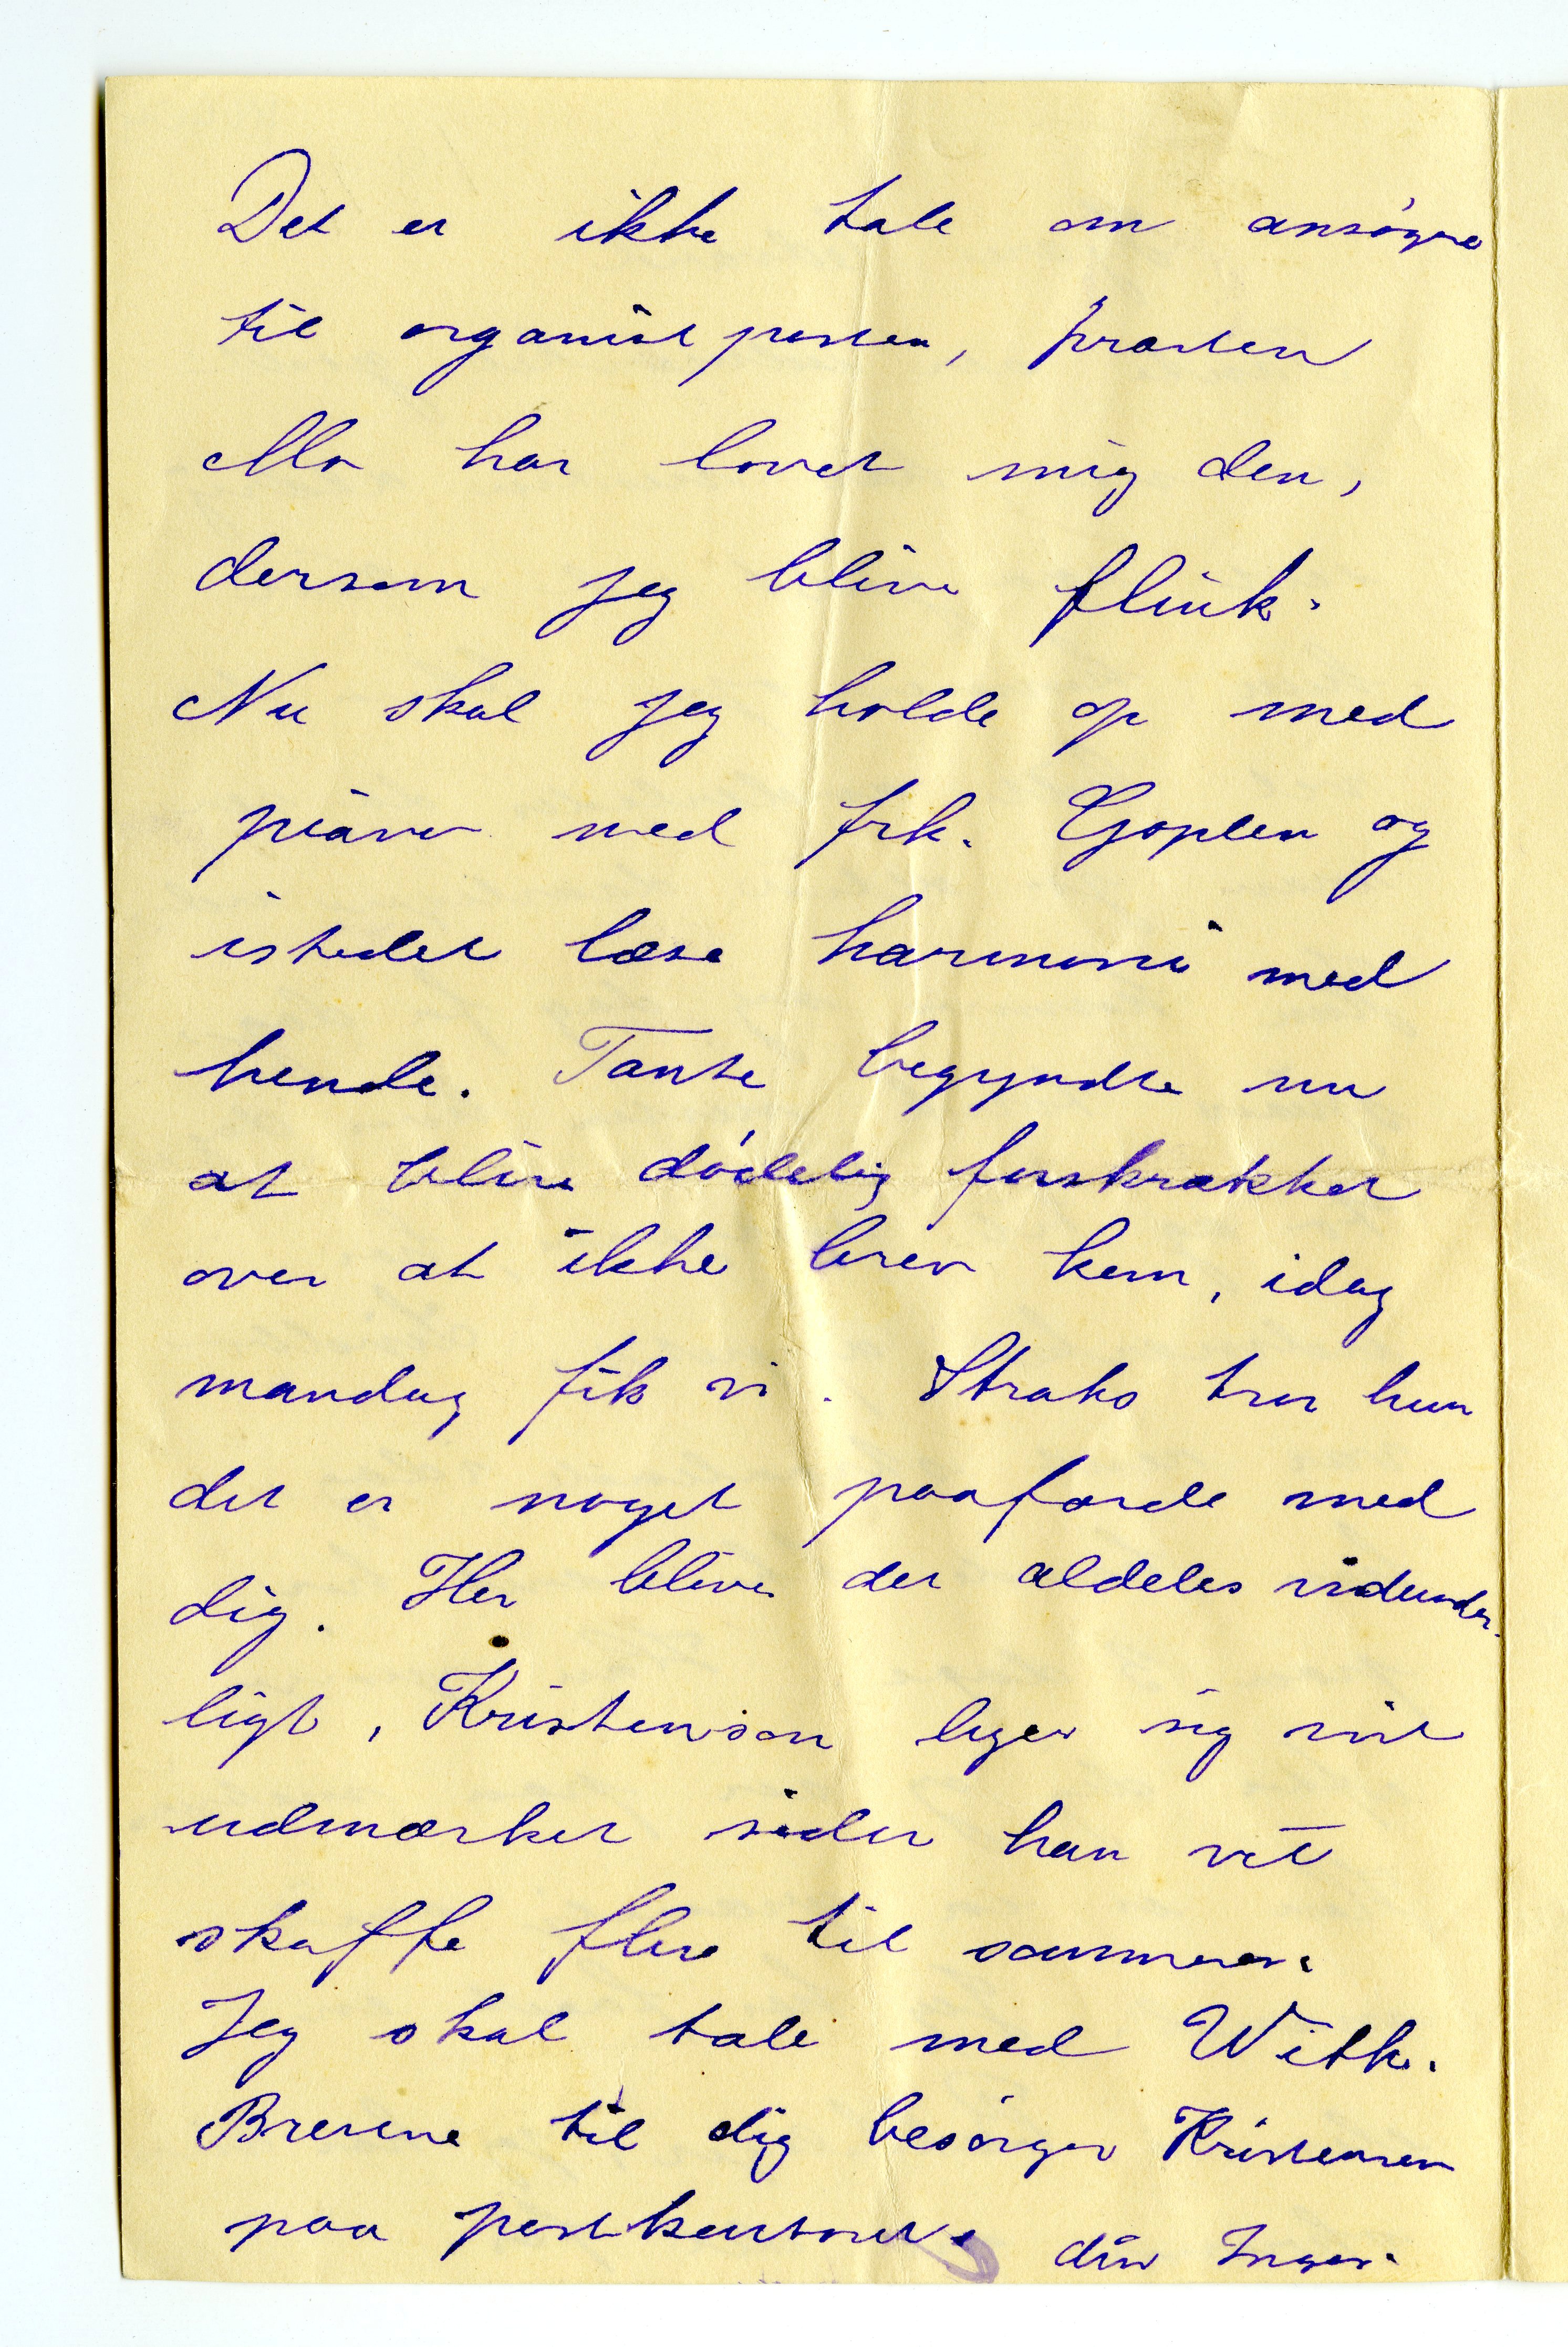 Det er ikke tale om ansøgne
til organistposten, præsten
Mo har lovet mig den,
dersom jeg blive flink.
Nu skal jeg holde op med
piano med frk. Gjoplen og
istedet læse harmoni med
hende. Tante begyndte nu
at blive dödelig forskrækket
over at ikke brev kom, idag
mandag fik vi. Straks tror hun
det er noget paafærde med
dig. Her bliver det aldeles vidunder-
ligt, Kristenson leger sig
udmærket siden han vil
skaffe flere til sommeren.
Jeg skal tale med With.
Brevene til dig besörger Kristensen
paa postkontoret. din Inger.